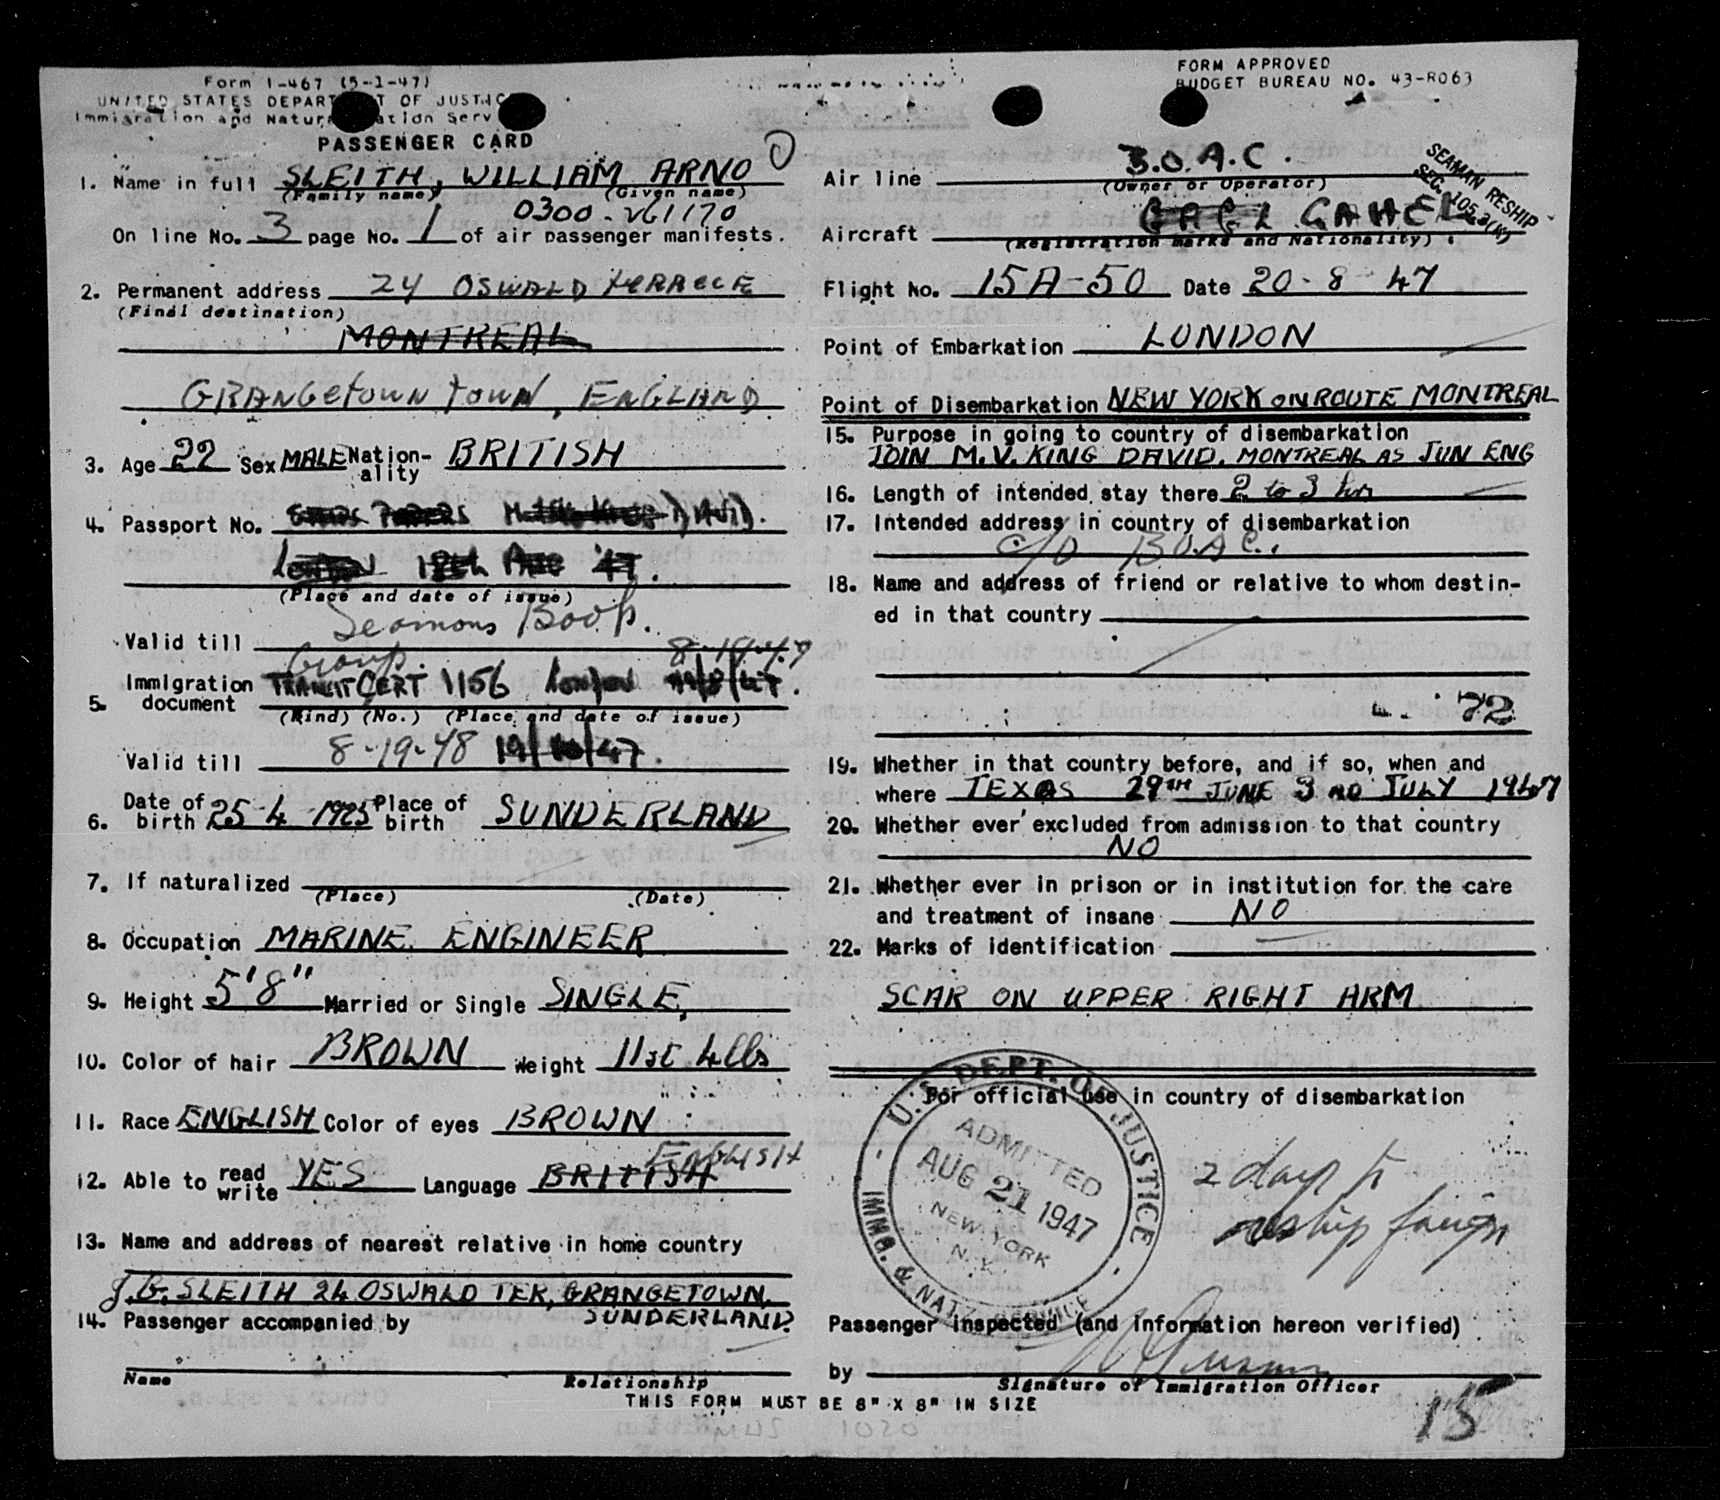 Form I-467 (5-1-47)
UNITED STATES DEPARTMENT OF JUSTICE
Immigration and Naturalization Serv
PASSENGER CARD
1. Name in full SLEITH, WILLIAM ARNO
(Family name) (Given name)
0300-V61170
On line No. 3 page No. 1 of air passenger manifests.
2. Permanent address 24 OSWALD TERRACE
(Final destination)
MONTREAL
GRANGETOWN TOWN, ENGLAND
3. Age 22 Sex MALE Nationality BRITISH
4. Passport No. SHIPS PAPERS DAVID.
LONDON 18th AUG '47.
(Place and date of issue)
Seamans Book.
Valid till
Group. 8-19-47
5. Immigration document TRANSIT CERT 1156 London 19/8/47.
(Kind) (No.) (Place and date of issue)
Valid till 8-19-48 19/10/47.
6. Date of birth 25-4-1925 Place of birth SUNDERLAND
7. If naturalized
(Place) (Date)
8. Occupation MARINE ENGINEER
9. Height 5'8" Married or Single SINGLE,
10. Color of hair BROWN Weight 11st 4lbs
11. Race ENGLISH Color of eyes BROWN
ENGLISH
12. Able to read write YES Language BRITISH
13. Name and address of nearest relative in home country
J.G. SLEITH 24 OSWALD TER, GRANGETOWN,
SUNDERLAND.
14. Passenger accompanied by
Name Relationship
THIS FORM MUST BE 8" X 8" IN SIZE
FORM APPROVED
BUDGET BUREAU NO. 43-R063
Air line B.O.A.C.
(Owner or Operator)
SEAMAN RESHIP
SEC. 105.3(W)
Aircraft GAHEL
(Registration marks and Nationality)
Flight No. 15A-50 Date 20-8 47
Point of Embarkation LONDON
Point of Disembarkation NEW YORK ON ROUTE MONTREAL
15. Purpose in going to country of disembarkation
JOIN M.V. KING DAVID. MONTREAL AS JUN ENG
16. Length of intended stay there 2 to 3 hrs
17. Intended address in country of disembarkation
C/O B.O.A.C.
18. Name and address of friend or relative to whom destin-
ed in that country
72
19. Whether in that country before, and if so, when and
where TEXAS 29TH JUNE 3RD JULY 1947
20. Whether ever excluded from admission to that country
NO
21. Whether ever in prison or in institution for the care
and treatment of insane NO
22. Marks of identification
SCAR ON UPPER RIGHT ARM
For official use in country of disembarkation
U.S. DEPT. OF JUSTICE
ADMITTED
AUG 21 1947
NEW YORK
N.Y.
IMMG. & NATZ. SERVICE
2 days to
reship foreign
Passenger inspected (and information hereon verified)
by
Signature of Immigration Officer
15